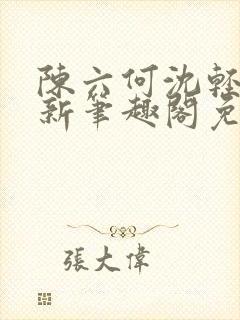 陳六何沈輕
新筆趣閣免
張大偉